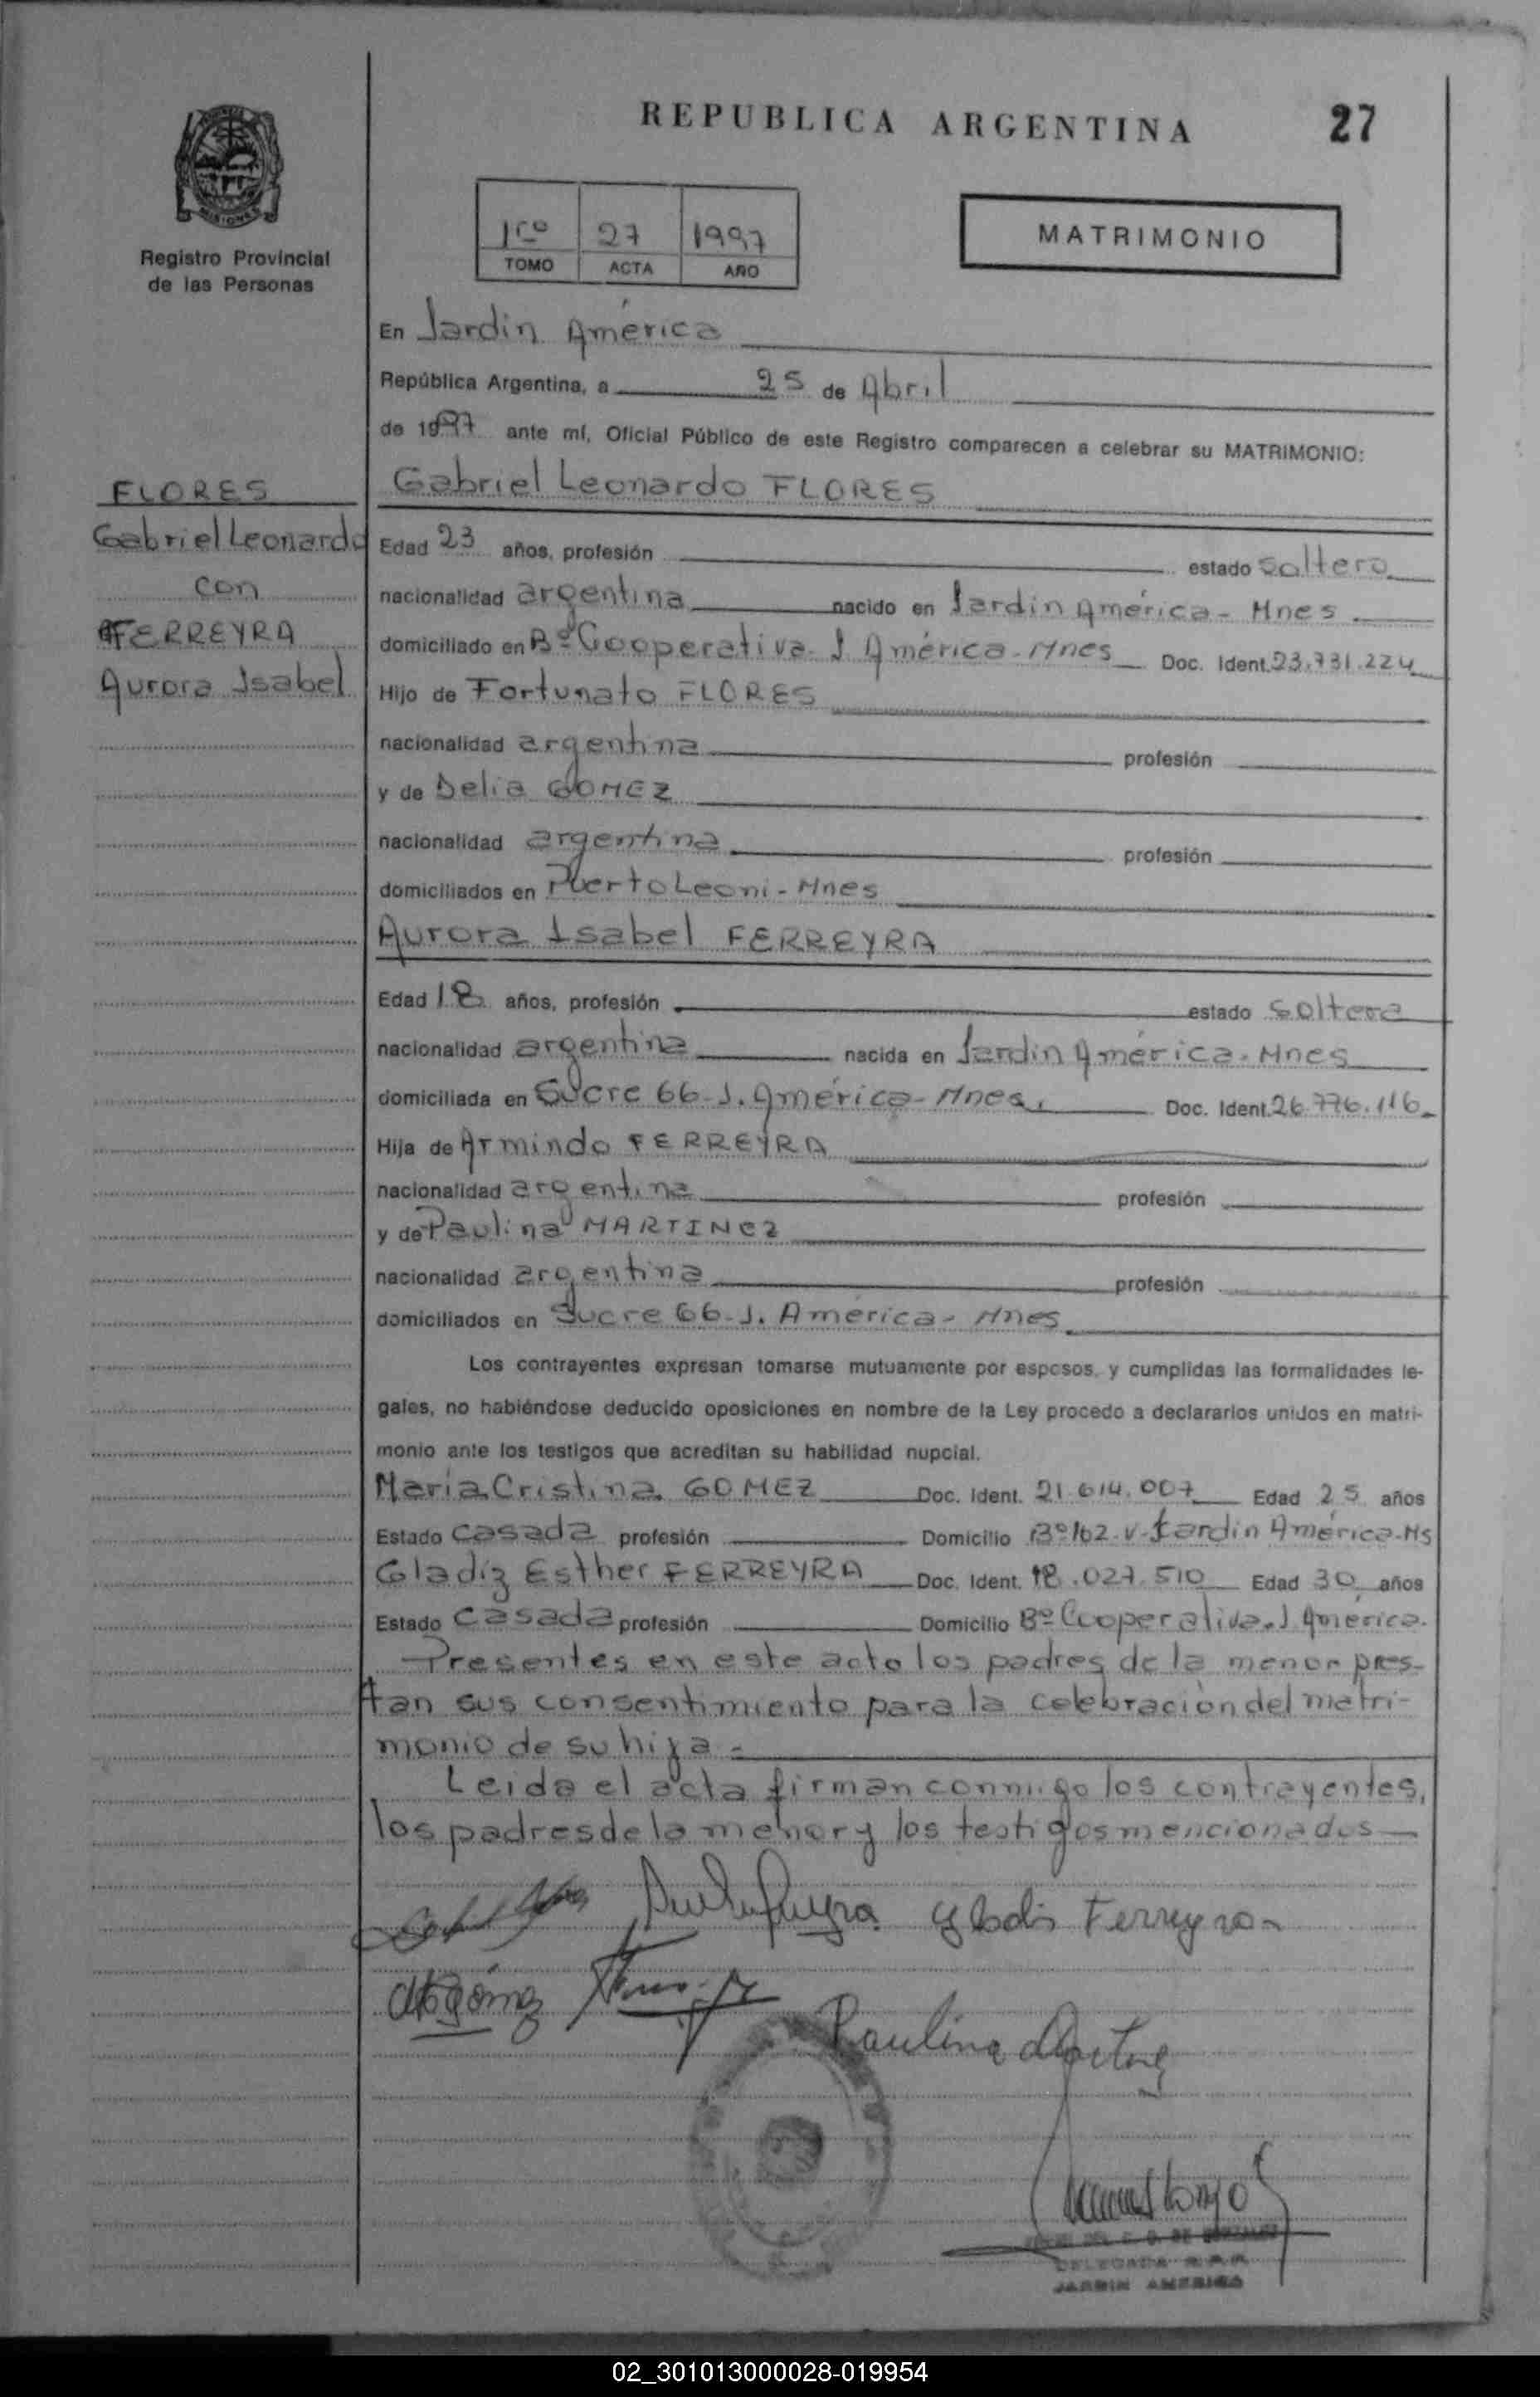 REPUBLICA ARGENTINA
27
MISIONES
Registro Provincial
de las Personas
1ro 27 1997
TOMO ACTA AÑO
MATRIMONIO
En Jardin América
República Argentina, a 25 de Abril
de 1997 ante mí, Oficial Público de este Registro comparecen a celebrar su MATRIMONIO:
FLORES
Gabriel Leonardo
con
FERREYRA
Aurora Isabel
Gabriel Leonardo FLORES
Edad 23 años, profesión estado soltero
nacionalidad argentina nacido en Jardin América - Mnes
domiciliado en Bº Cooperativa J. América - Mnes Doc. Ident. 23.731.224
Hijo de Fortunato FLORES
nacionalidad argentina profesión
y de Delia GOMEZ
nacionalidad argentina profesión
domiciliados en Puerto Leoni - Mnes
Aurora Isabel FERREYRA
Edad 18 años, profesión estado soltera
nacionalidad argentina nacida en Jardin América - Mnes
domiciliada en Sucre 66 - J. América - Mnes. Doc. Ident. 26.776.116
Hija de Armindo FERREYRA
nacionalidad argentina profesión
y de Paulina MARTINEZ
nacionalidad argentina profesión
domiciliados en Sucre 66 - J. America - Mnes
Los contrayentes expresan tomarse mutuamente por esposos, y cumplidas las formalidades le-
gales, no habiéndose deducido oposiciones en nombre de la Ley procedo a declararlos unidos en matri-
monio ante los testigos que acreditan su habilidad nupcial.
Maria Cristina GOMEZ Doc. Ident. 21.614.007 Edad 25 años
Estado casada profesión Domicilio Bº 162 - V - Jardin América - Ms
Gladiz Esther FERREYRA Doc. Ident. 18.027.510 Edad 30 años
Estado casada profesión Domicilio Bº Cooperativa. J América.
Presentes en este acto los padres de la menor pres-
tan sus consentimiento para la celebración del matri-
monio de su hija -
Leida el acta firman conmigo los contrayentes,
los padres de la menor y los testigos mencionados
Gladis Ferreyra
Gómez
Paulina
DELEGADA R.P.P.
JARDIN AMERICA
02_301013000028-019954